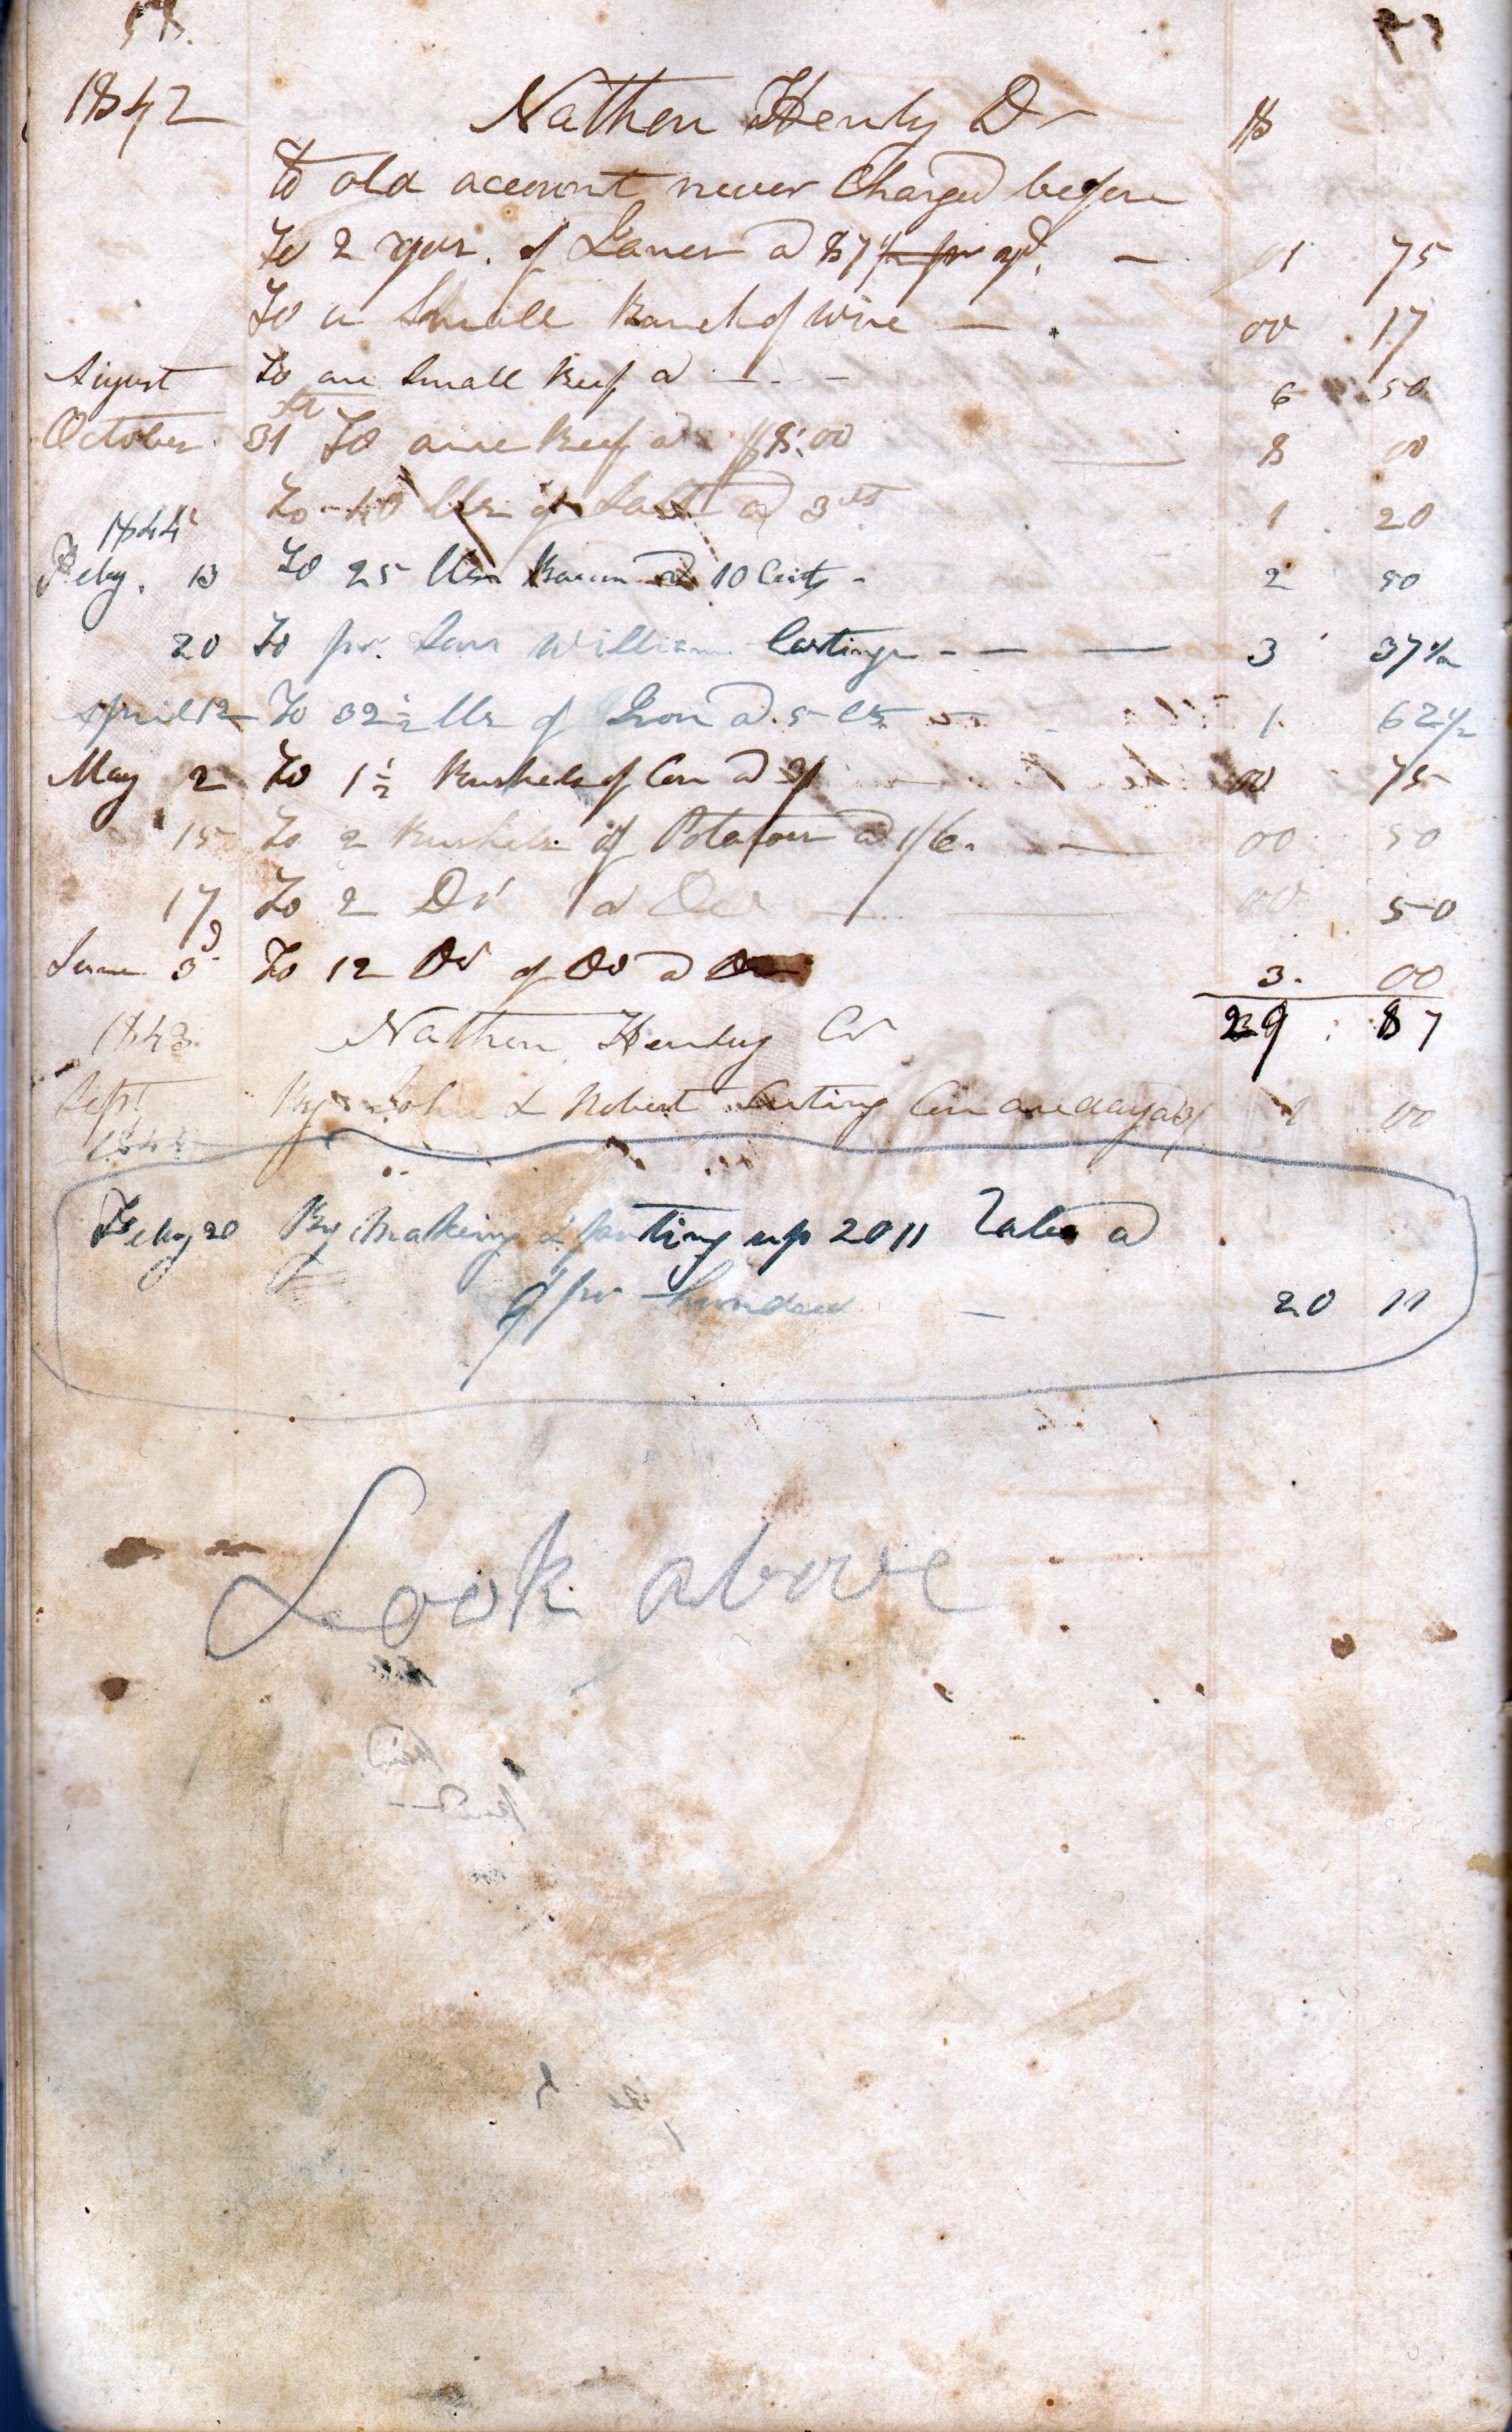 1842 Nathen Henly Dr $
to old account never Charged before
To 2 yds. of @ 87½ pr yd. 01 75
To a Small of wire 00 17
August To one Small Beef @ 6 50
October 31st To one Beef @ $8:00 8 00
To 40 lbs of Salt @ 3 cts 1 20
1844
Feby. 13 To 25 lbs Bacon @ 10 Cents 2 50
20 To pr. Son William Castings 3 37½
April 12 To 32½ lbs of Iron @ 5 cts 1 62½
May 2 To 1½ Bushels of Corn @ 3/ 00 75
15 To 2 Bushels of Potatoes @ 1/6. 00 50
17 To 2 Do @ Do 00 50
June 3d To 12 Do of Do @ Do 3. 00
29 87
1843 Nathen Henly Cr
Sept By John & Robert Cutting Corn one day @ 3/ 1 00
1844
Feby 20 By Making & putting up 2011 Rales @
6/ pr hundred 20 11
Look above